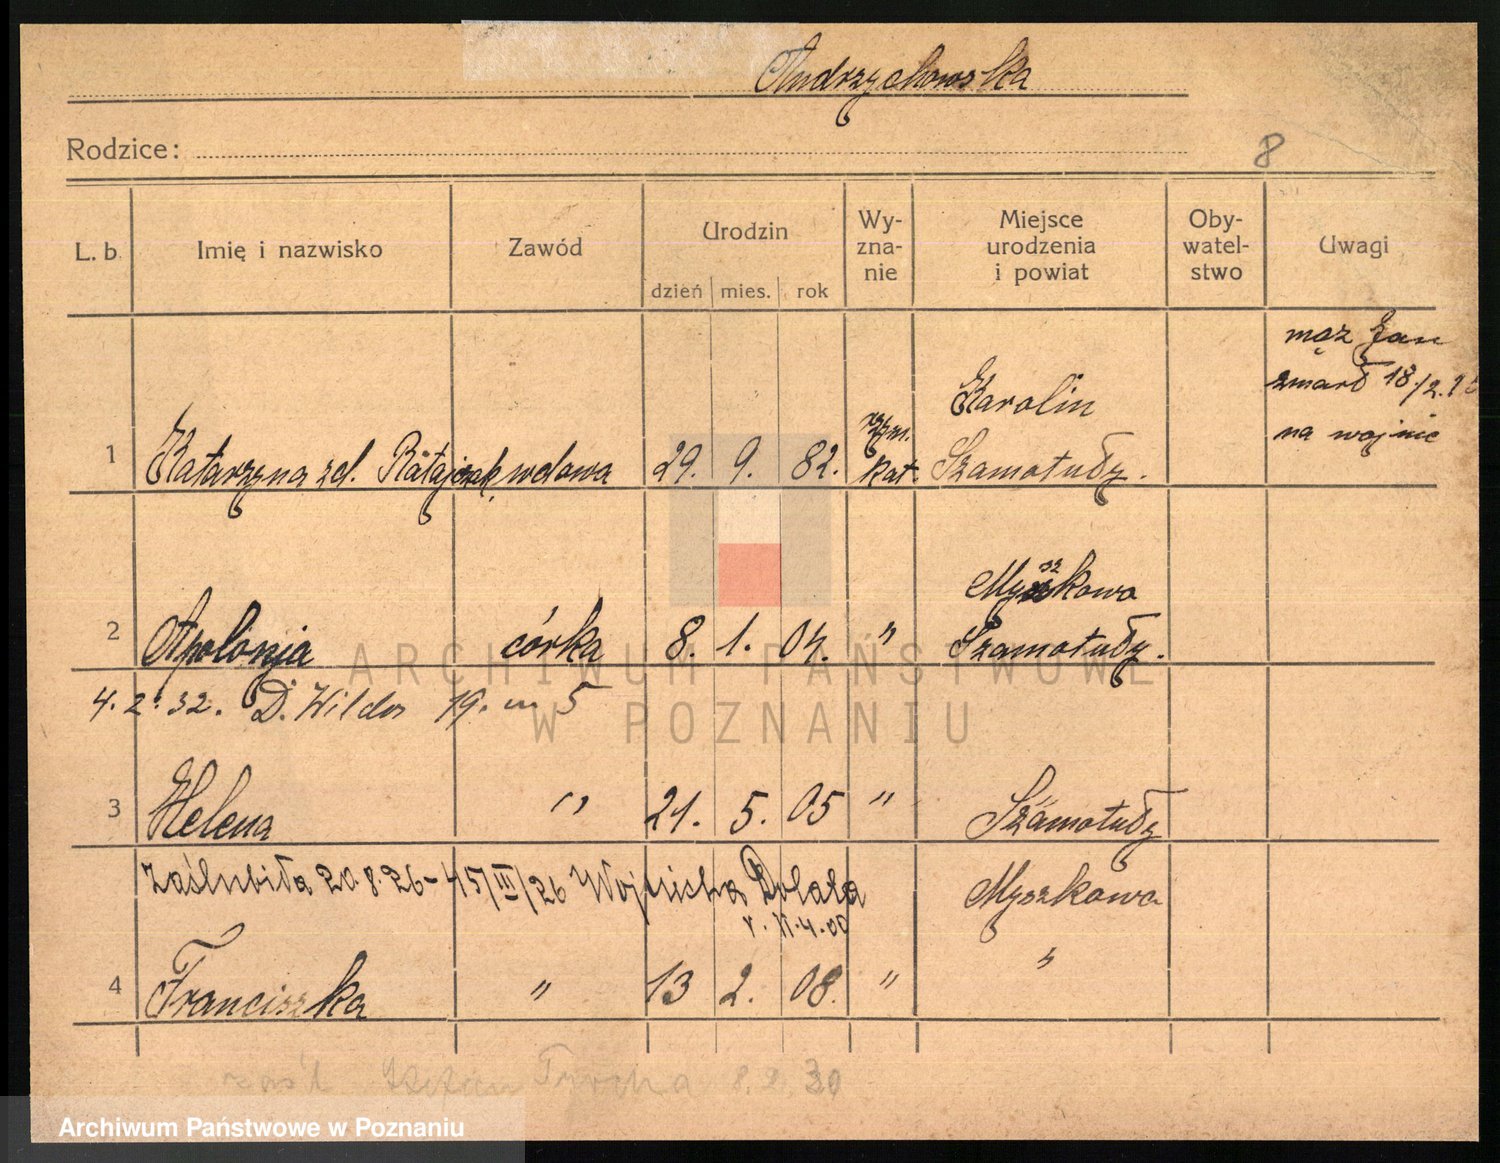 Andrzychowska
Rodzice:
8
L. b. Imię i nazwisko Zawód Urodzin Wy-zna-nie Miejsce urodzenia i powiat Oby-watel-stwo Uwagi
dzień mies. rok
1 Katarzyna zd. Ratajczak, wdowa 29. 9. 82. rzym. kat. Karolin Szamotuły.
mąż Jan
zmarł 18/2.15
na wojnie
2 Apolonja córka 8. 1. 04. " Myszkowo Szamotuły.
4. 2. 32. D. Wilda 19. m 5
3 Helena " 21. 5. 05 " Szamotuły
zaślubiła 20.8.26 - 45/III/26 Wojciecha
Myszkowo
4 Franciszka " 13 2. 08. " "
zaśl. Stefan 8. 2. 30
ARCHIWUM PAŃSTWOWE
W POZNANIU
Archiwum Państwowe w Poznaniu